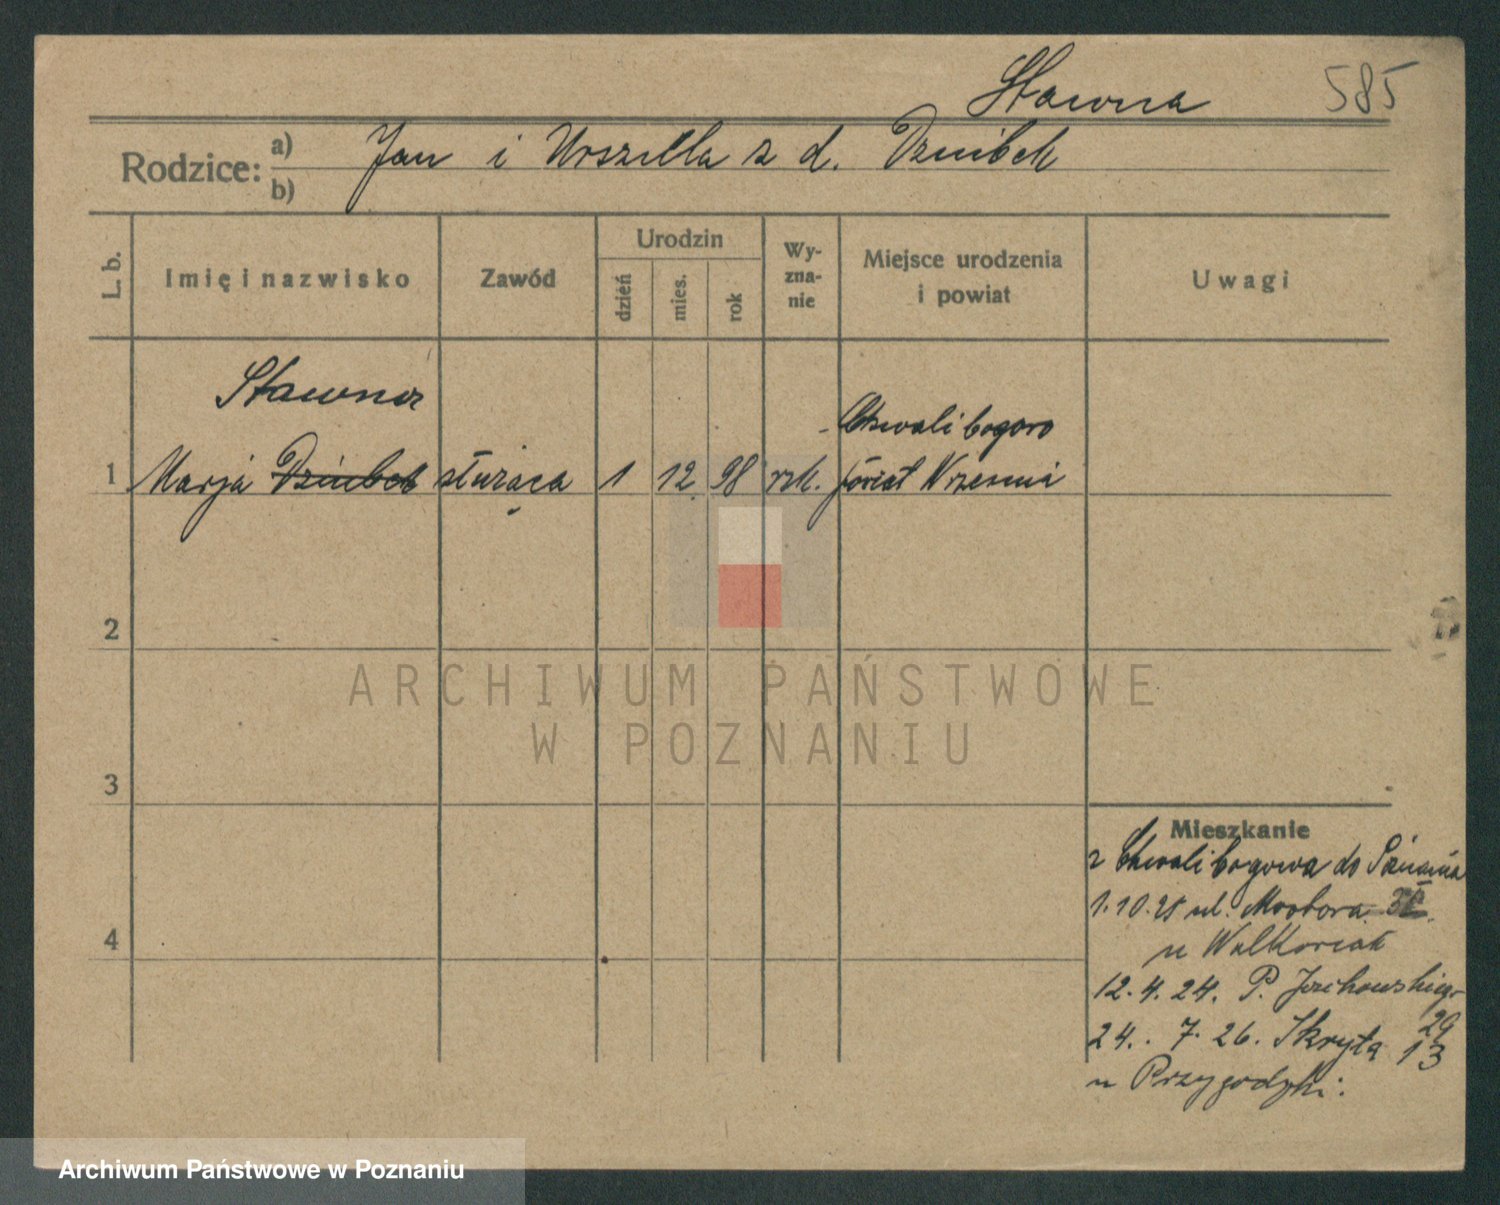 Stawna 585
Rodzice: a) Jan i Urszula z d. Dziubek
b)
L. b. Imię i nazwisko Zawód Urodzin dzień mies. rok Wy-zna-nie Miejsce urodzenia i powiat Uwagi
Stawna
Chwalibogowo
1 Marja Dziubek służąca 1 12 98 rzk. powiat Września
2
ARCHIWUM PAŃSTWOWE
W POZNANIU
3
Mieszkanie
z Chwalibogowa do Poznania
1.10.25 ul.
4
u
12.4.24. P.
29
24. 7. 26. Skryta 13
u Przygodzki.
Archiwum Państwowe w Poznaniu